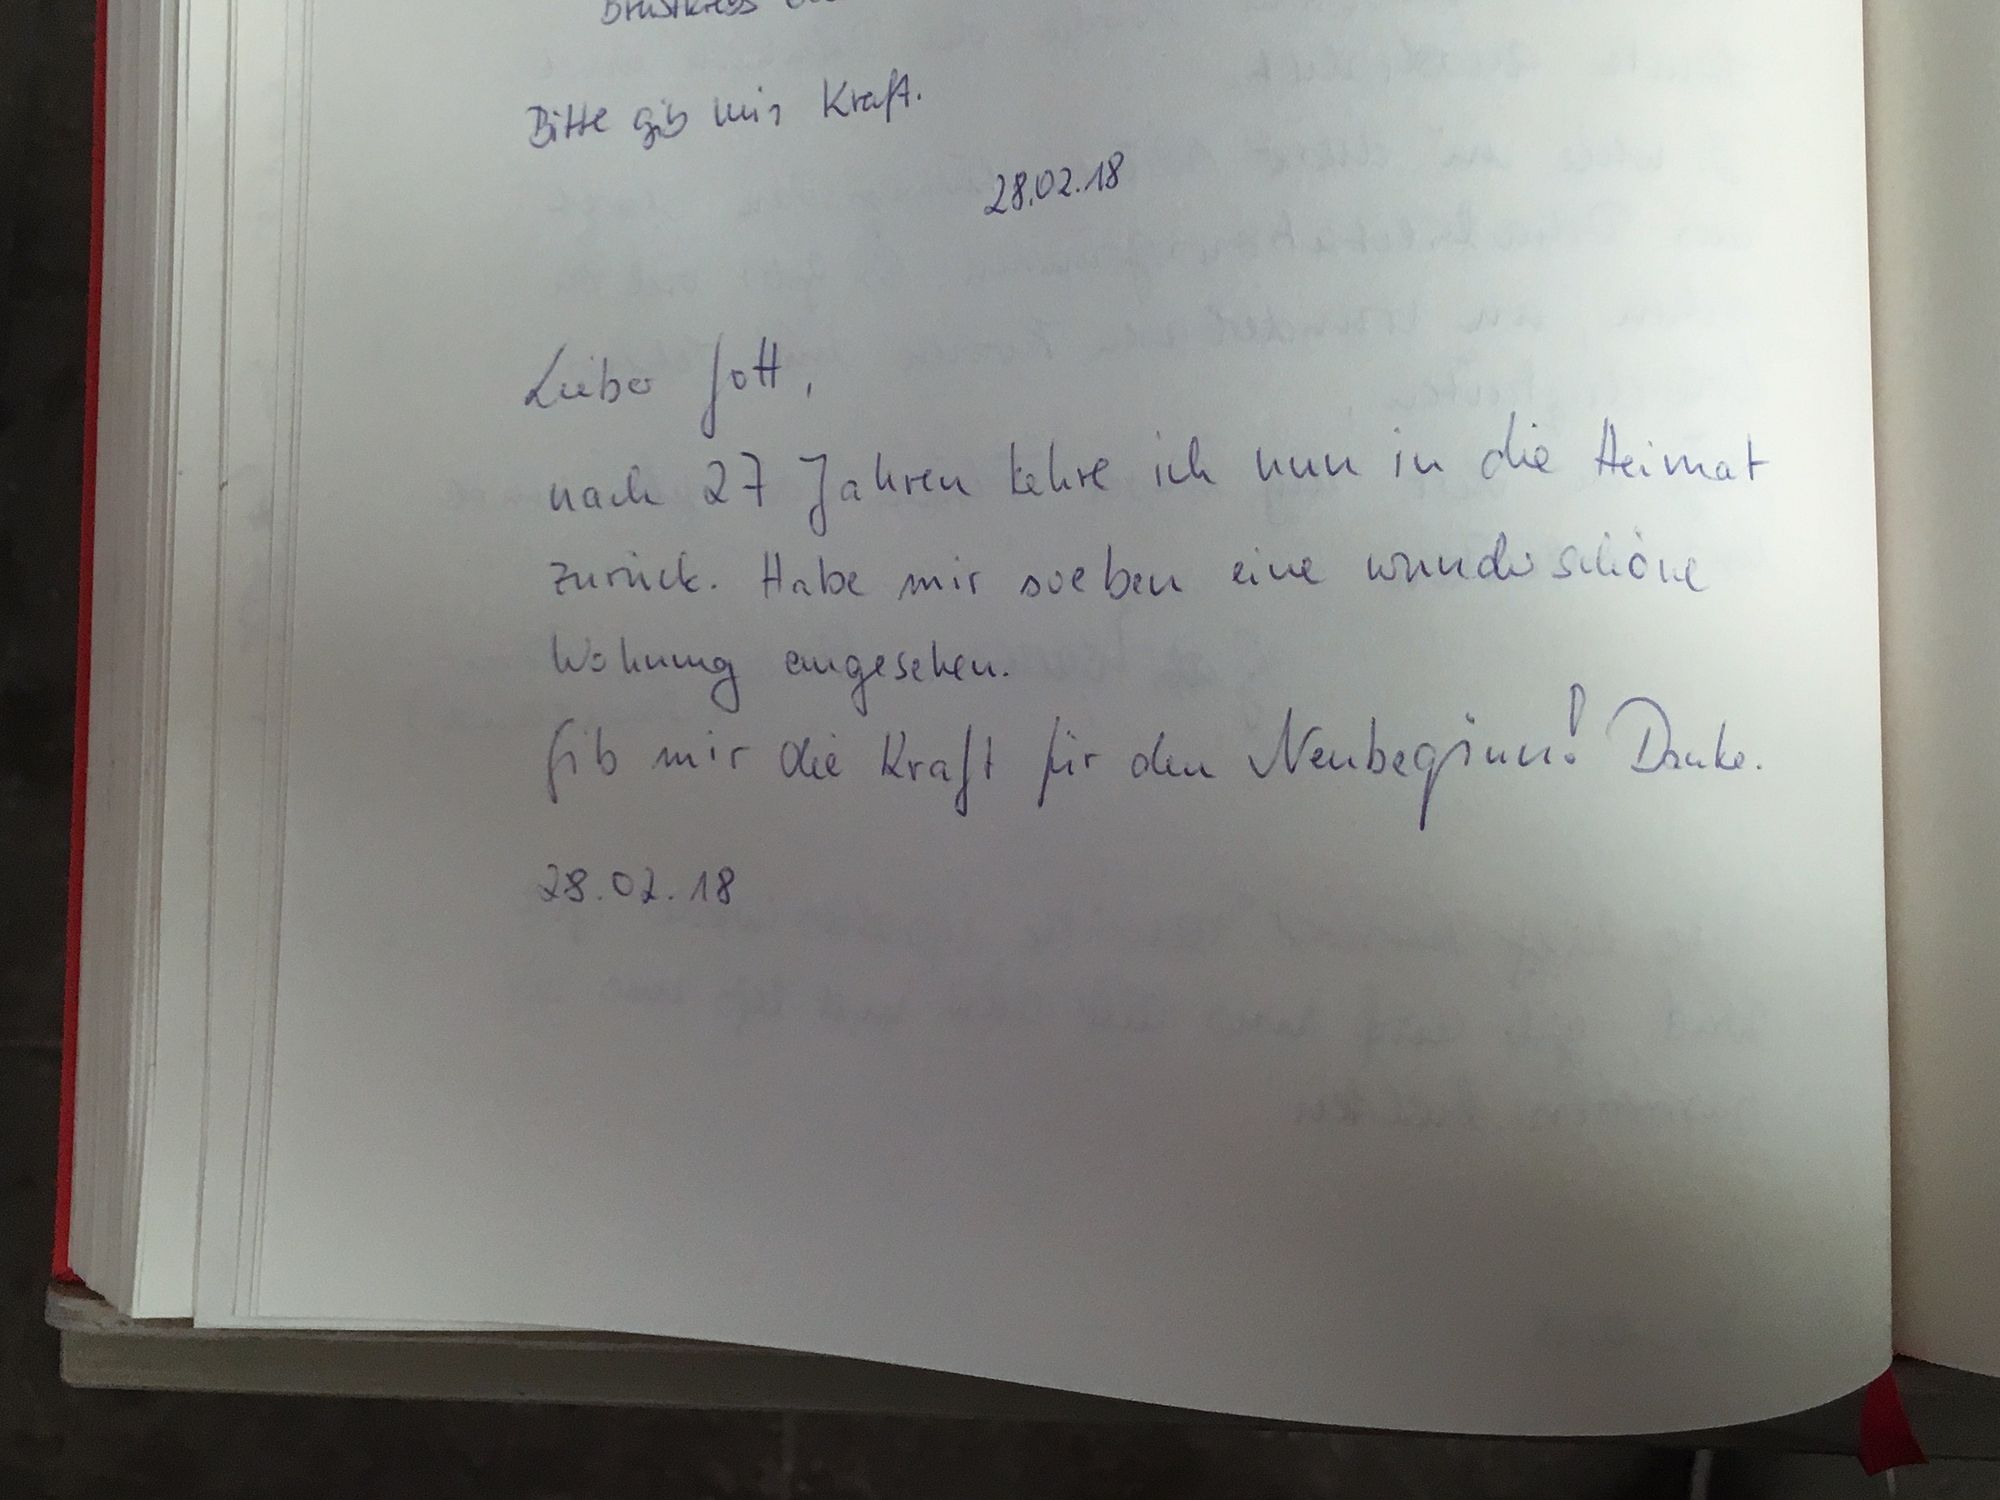 Brustkrebs
Bitte gib mir Kraft.
28.02.18
Lieber Gott,
nach 27 Jahren kehre ich nun in die Heimat
zurück. Habe mir soeben eine wunderschöne
Wohnung angesehen.
Gib mir die Kraft für den Neubeginn! Danke.
28.02.18